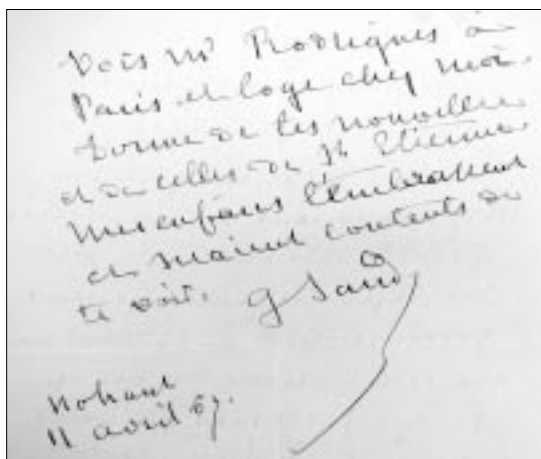 Vois Mr Rodrigues à
Paris et loge chez moi.
Donne de tes nouvelles
et de celles de St Etienne
Mes enfans t'embrassent
et seraient contents de
te voir. G Sand
Nohant
11 avril 67.